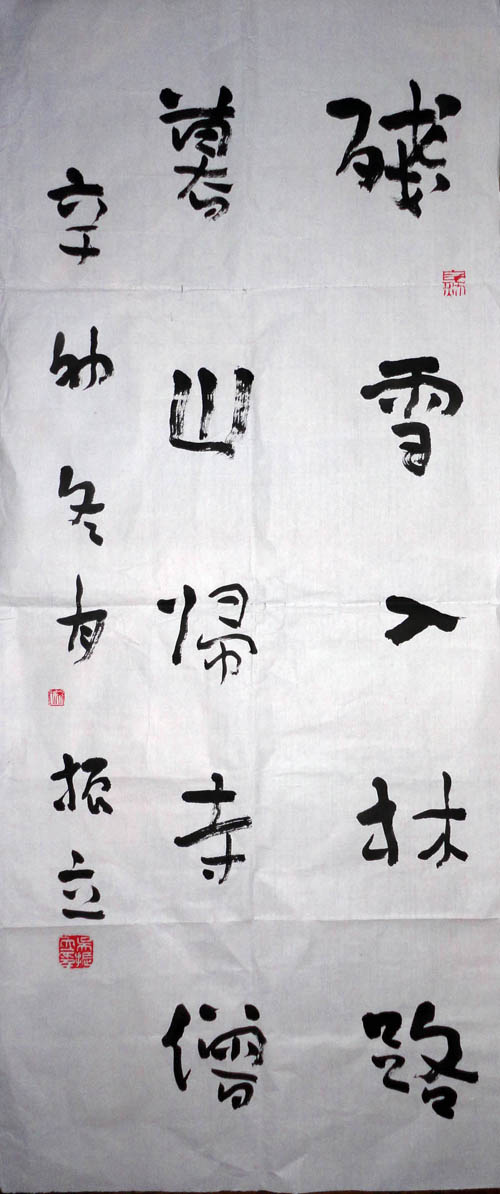 残雪入林路
暮山帰寺僧
辛卯冬月 振立